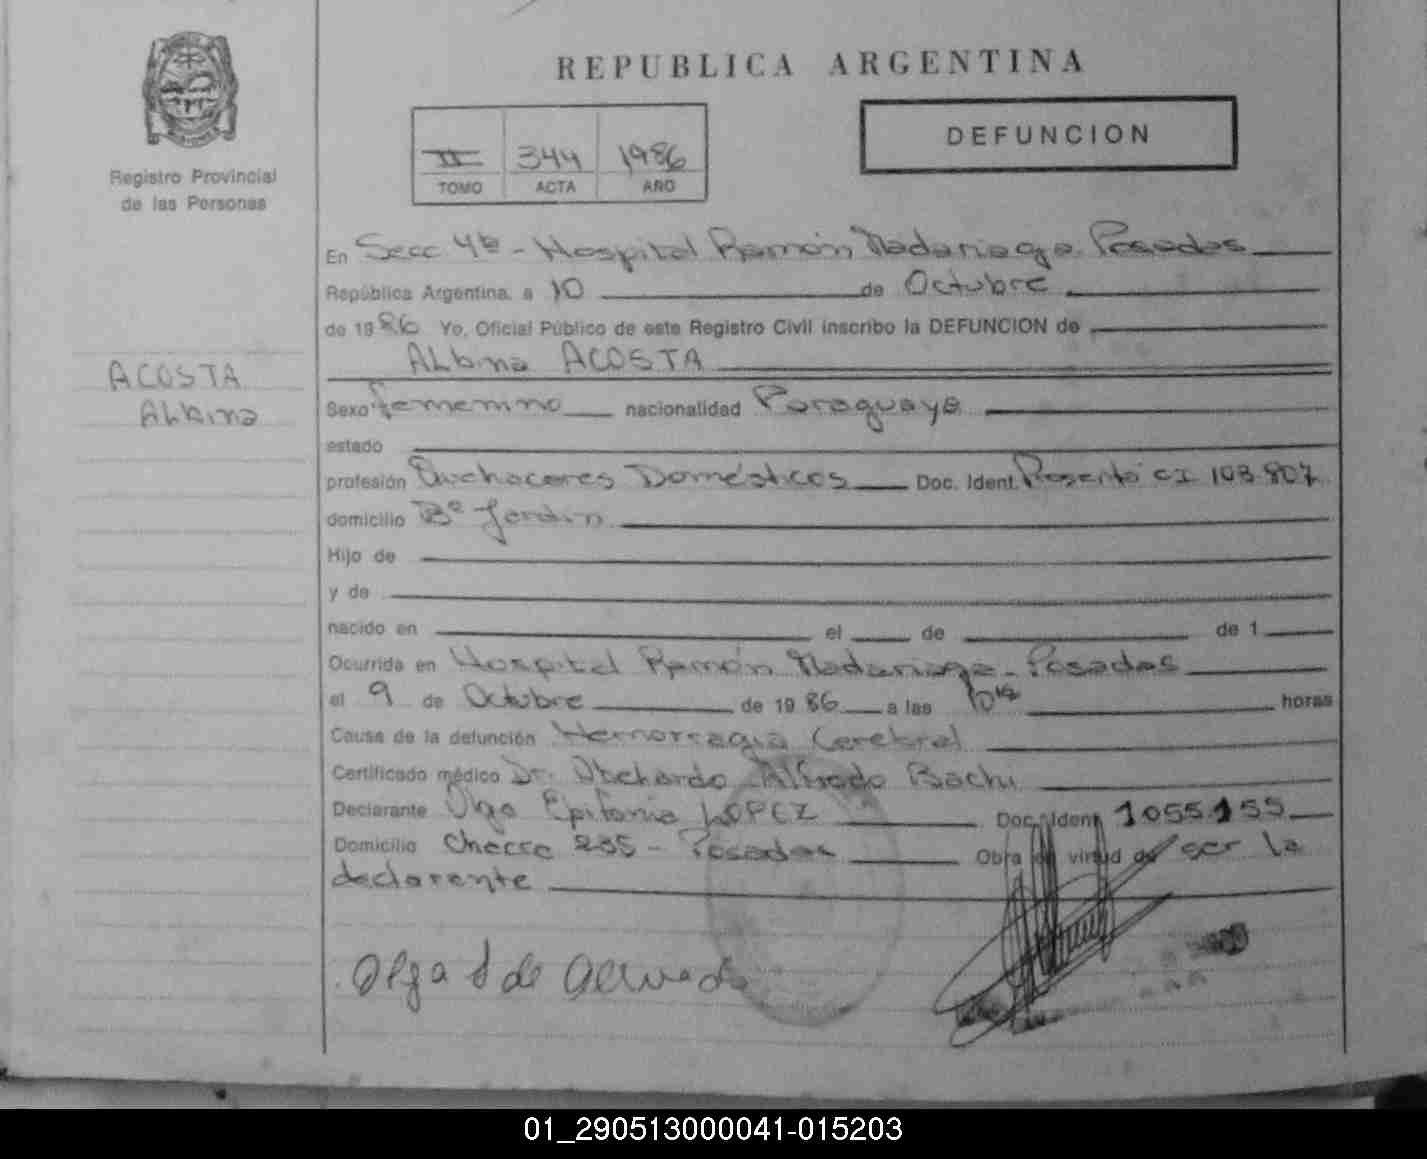 REPUBLICA ARGENTINA
DEFUNCION
II 344 1986
TOMO ACTA AÑO
Registro Provincial
de las Personas
ACOSTA
Albina
En Secc 4ta - Hospital Ramón Madariaga. Posadas
República Argentina, a 10 de Octubre
de 1986 Yo, Oficial Público de este Registro Civil inscribo la DEFUNCION de
ALbina ACOSTA
Sexo femenino nacionalidad Paraguaya
estado
profesión Quehaceres Domésticos Doc. Ident. Presentó CI 103.807
domicilio Bº Jardín
Hijo de
y de
nacido en el de de 1
Ocurrida en Hospital Ramón Madariaga - Posadas
el 9 de Octubre de 1986 a las horas
Causa de la defunción Hemorragia Cerebral
Certificado médico Dr. Alfredo Bachi
Declarante Olga Epifania LOPEZ Doc. Ident. 1055155
Domicilio 235 - Posadas Obra en virtud de ser la
declarante
Olga L de
01_290513000041-015203